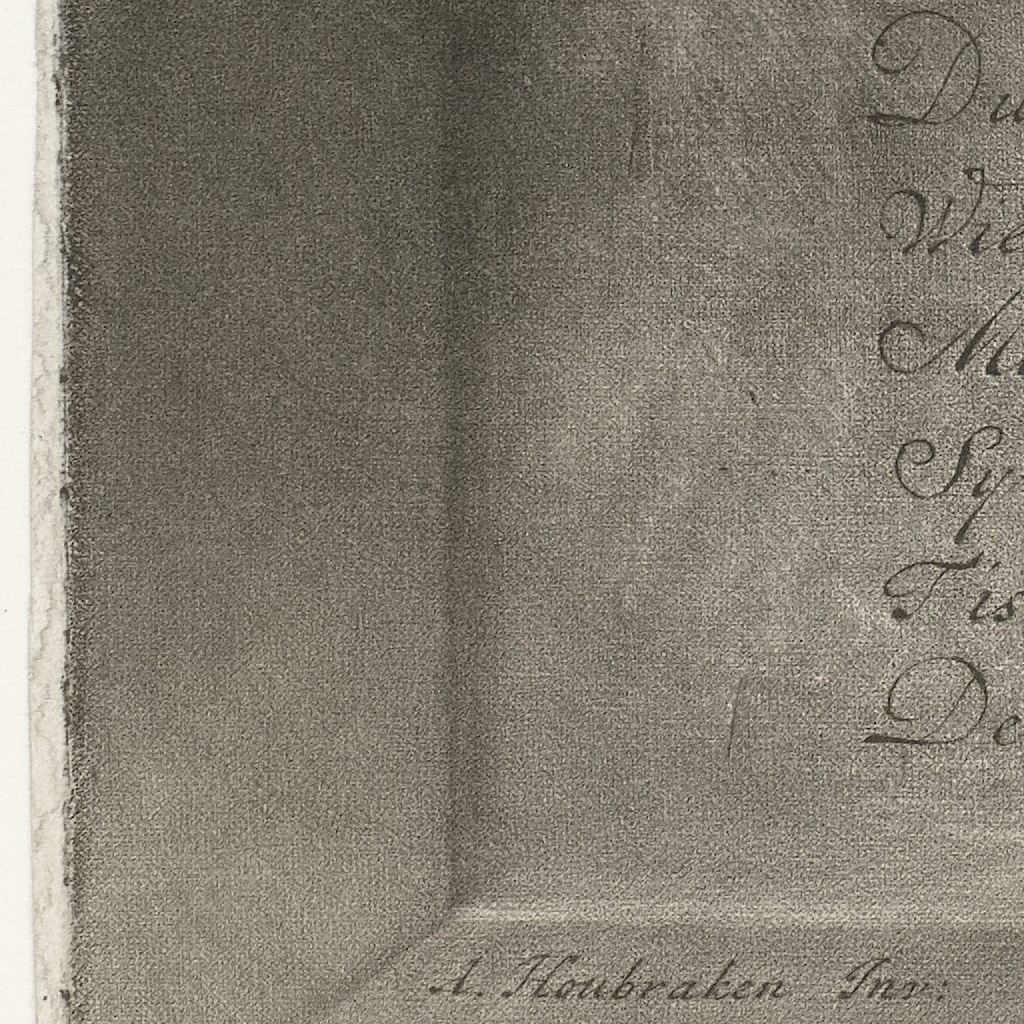 Du
Wie
Ma
Sy
Tis
De
A. Houbraken Inv: